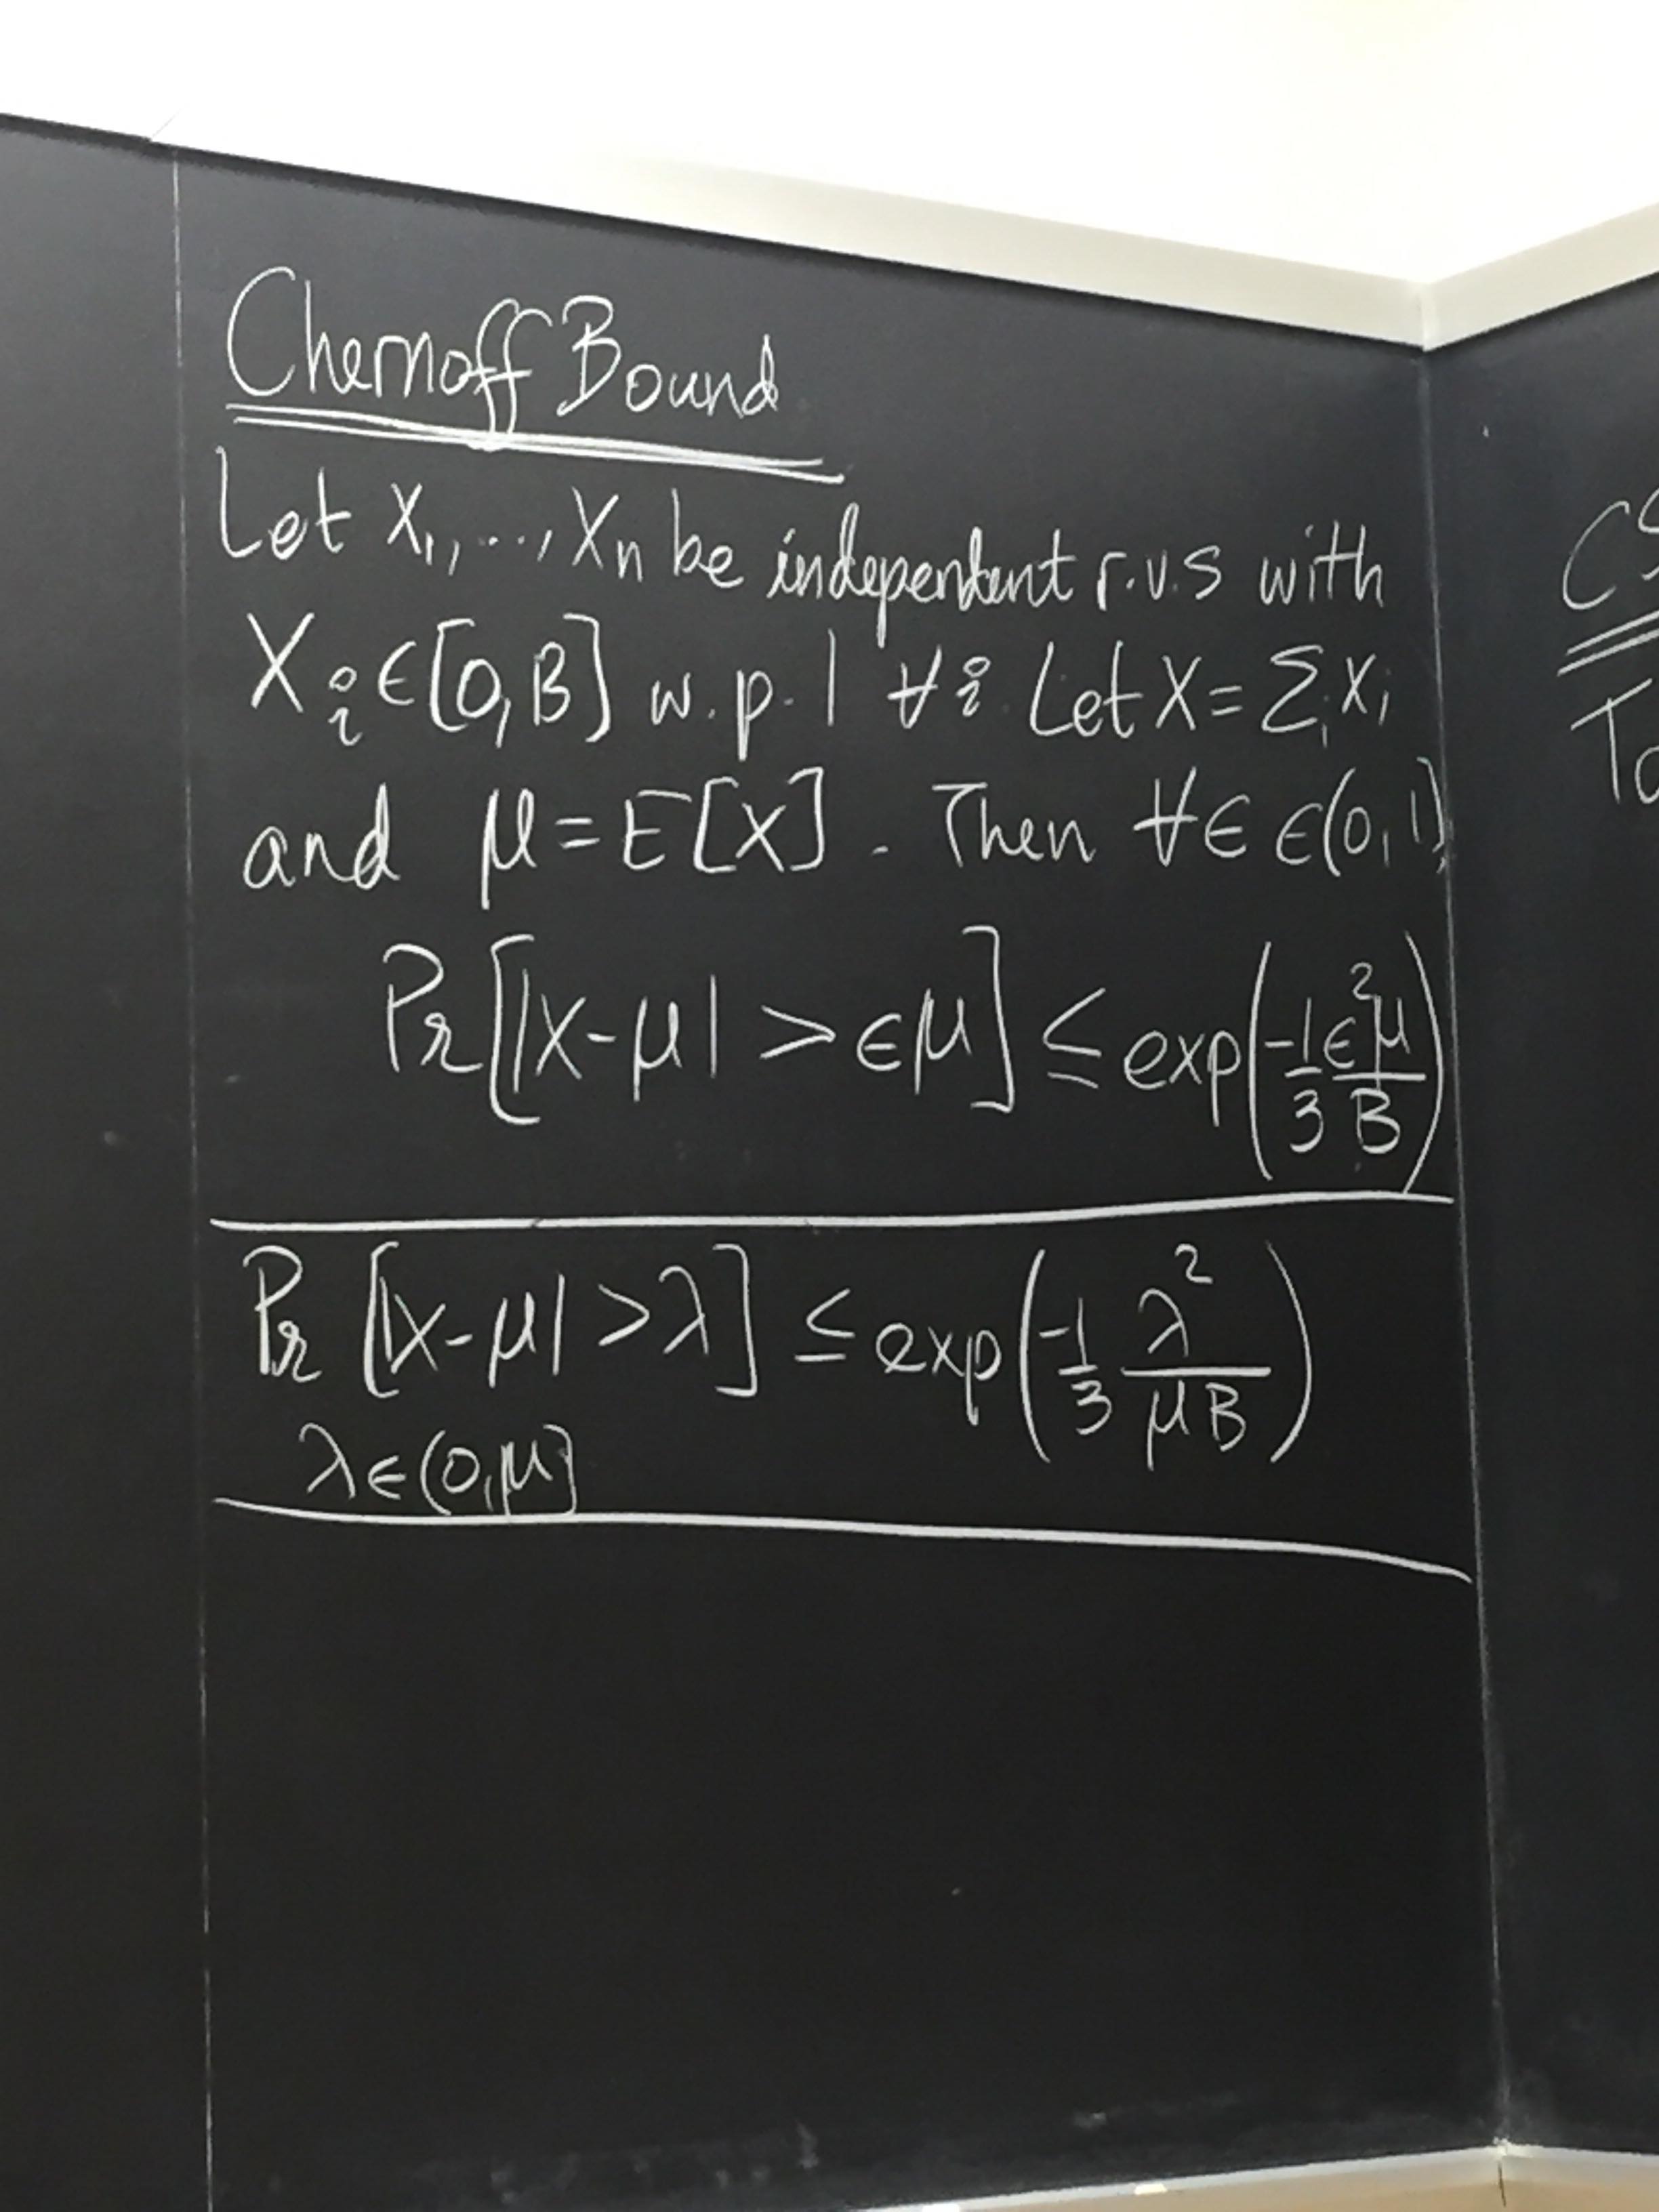 Chernoff Bound
Let X₁, ..., Xn be independent r.v.s with
Xᵢ ∈ [0, B] w.p. 1 ∀i. Let X = Σᵢ Xᵢ
and μ = E[X]. Then ∀ϵ ∈ (0, 1)
Pr[|X-μ| > ϵμ] ≤ exp(-1/3 ϵ²μ/B)
Pr [|X-μ| > λ] ≤ exp(-1/3 λ²/μB)
λ ∈ (0, μ]